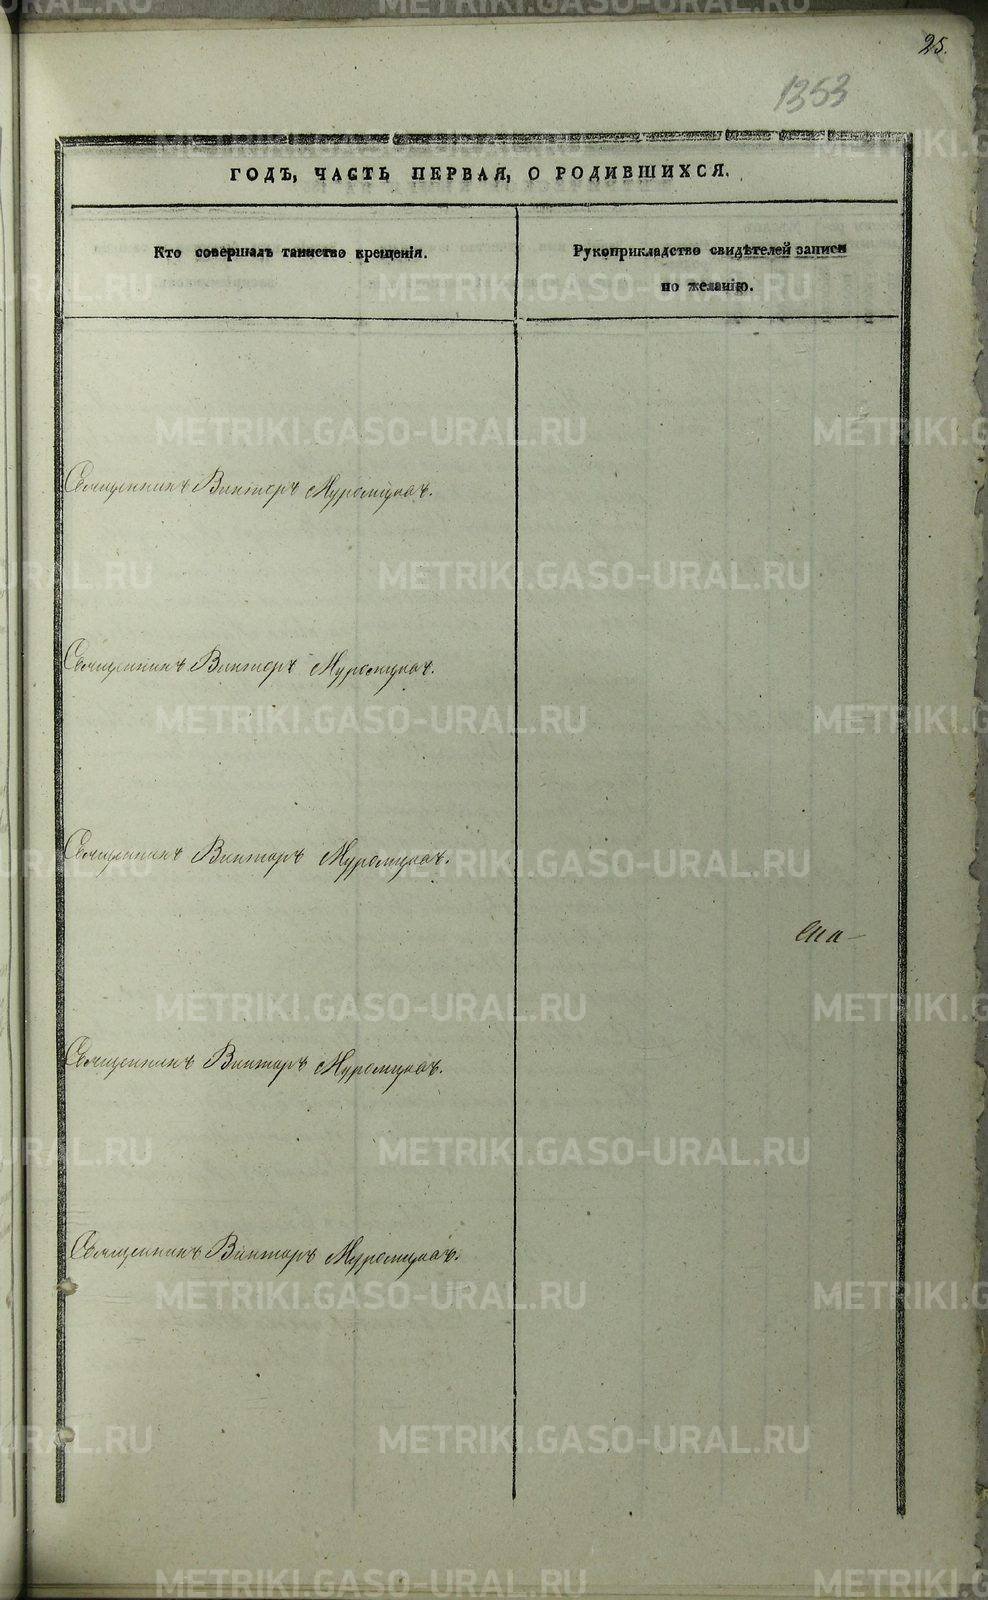 25.
1353
ГОДЪ, ЧАСТЬ ПЕРВАЯ, О РОДИВШИХСЯ.
Кто совершалъ таинство крещенія.
Рукоприкладство свидѣтелей записи
по желанію.
Священникъ Викторъ Муромцовъ.
Священникъ Викторъ Муромцовъ.
Священникъ Викторъ Муромцовъ.
Священникъ Викторъ Муромцовъ.
Священникъ Викторъ Муромцовъ.
METRIKI.GASO-URAL.RU